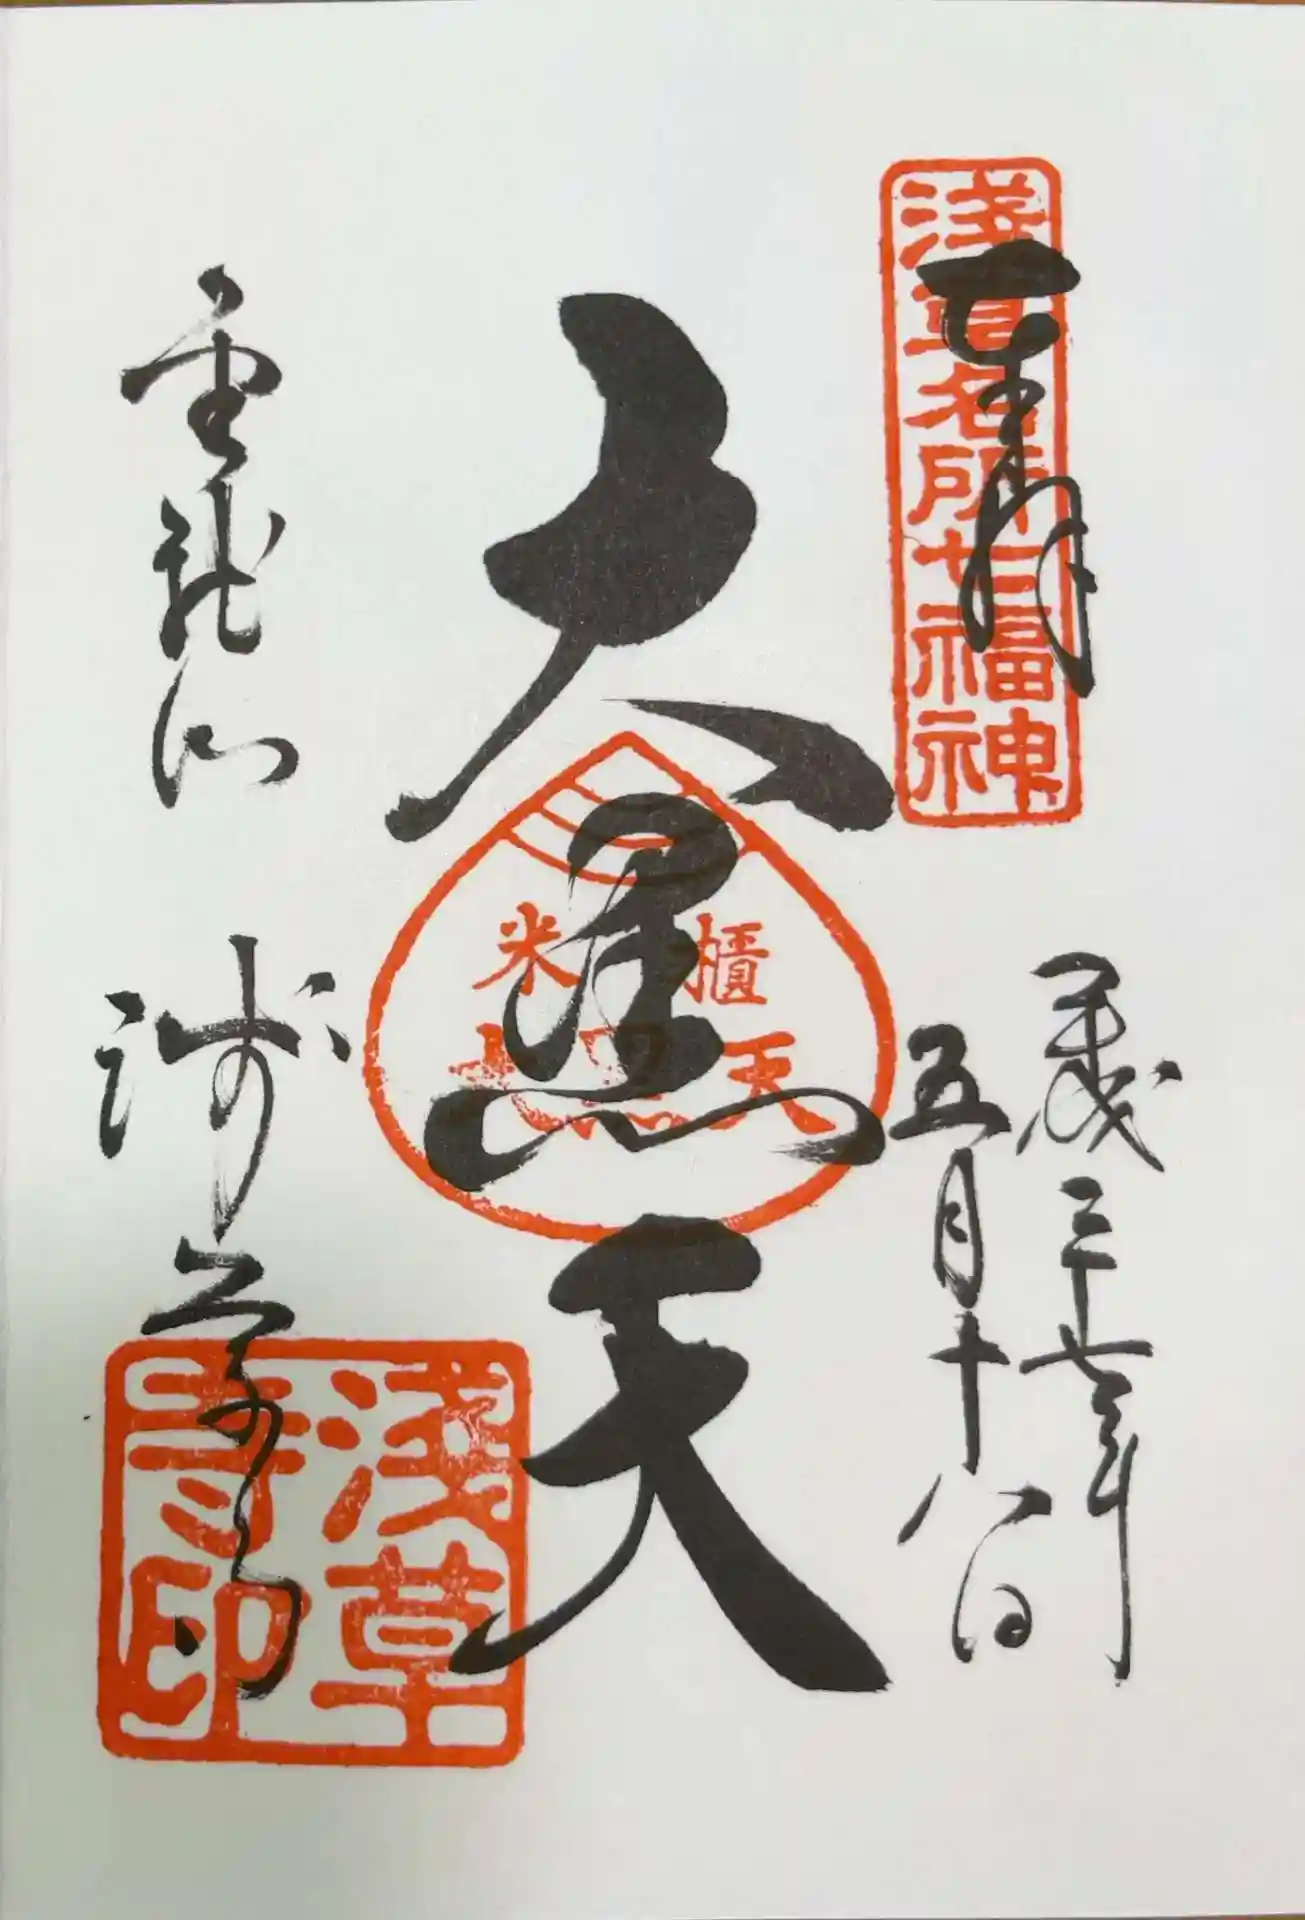 奉拝
淺草名所七福神
平成二十七年
五月十八日
大黒天
米櫃
大黒天
金龍山
浅草寺
淺草
寺印